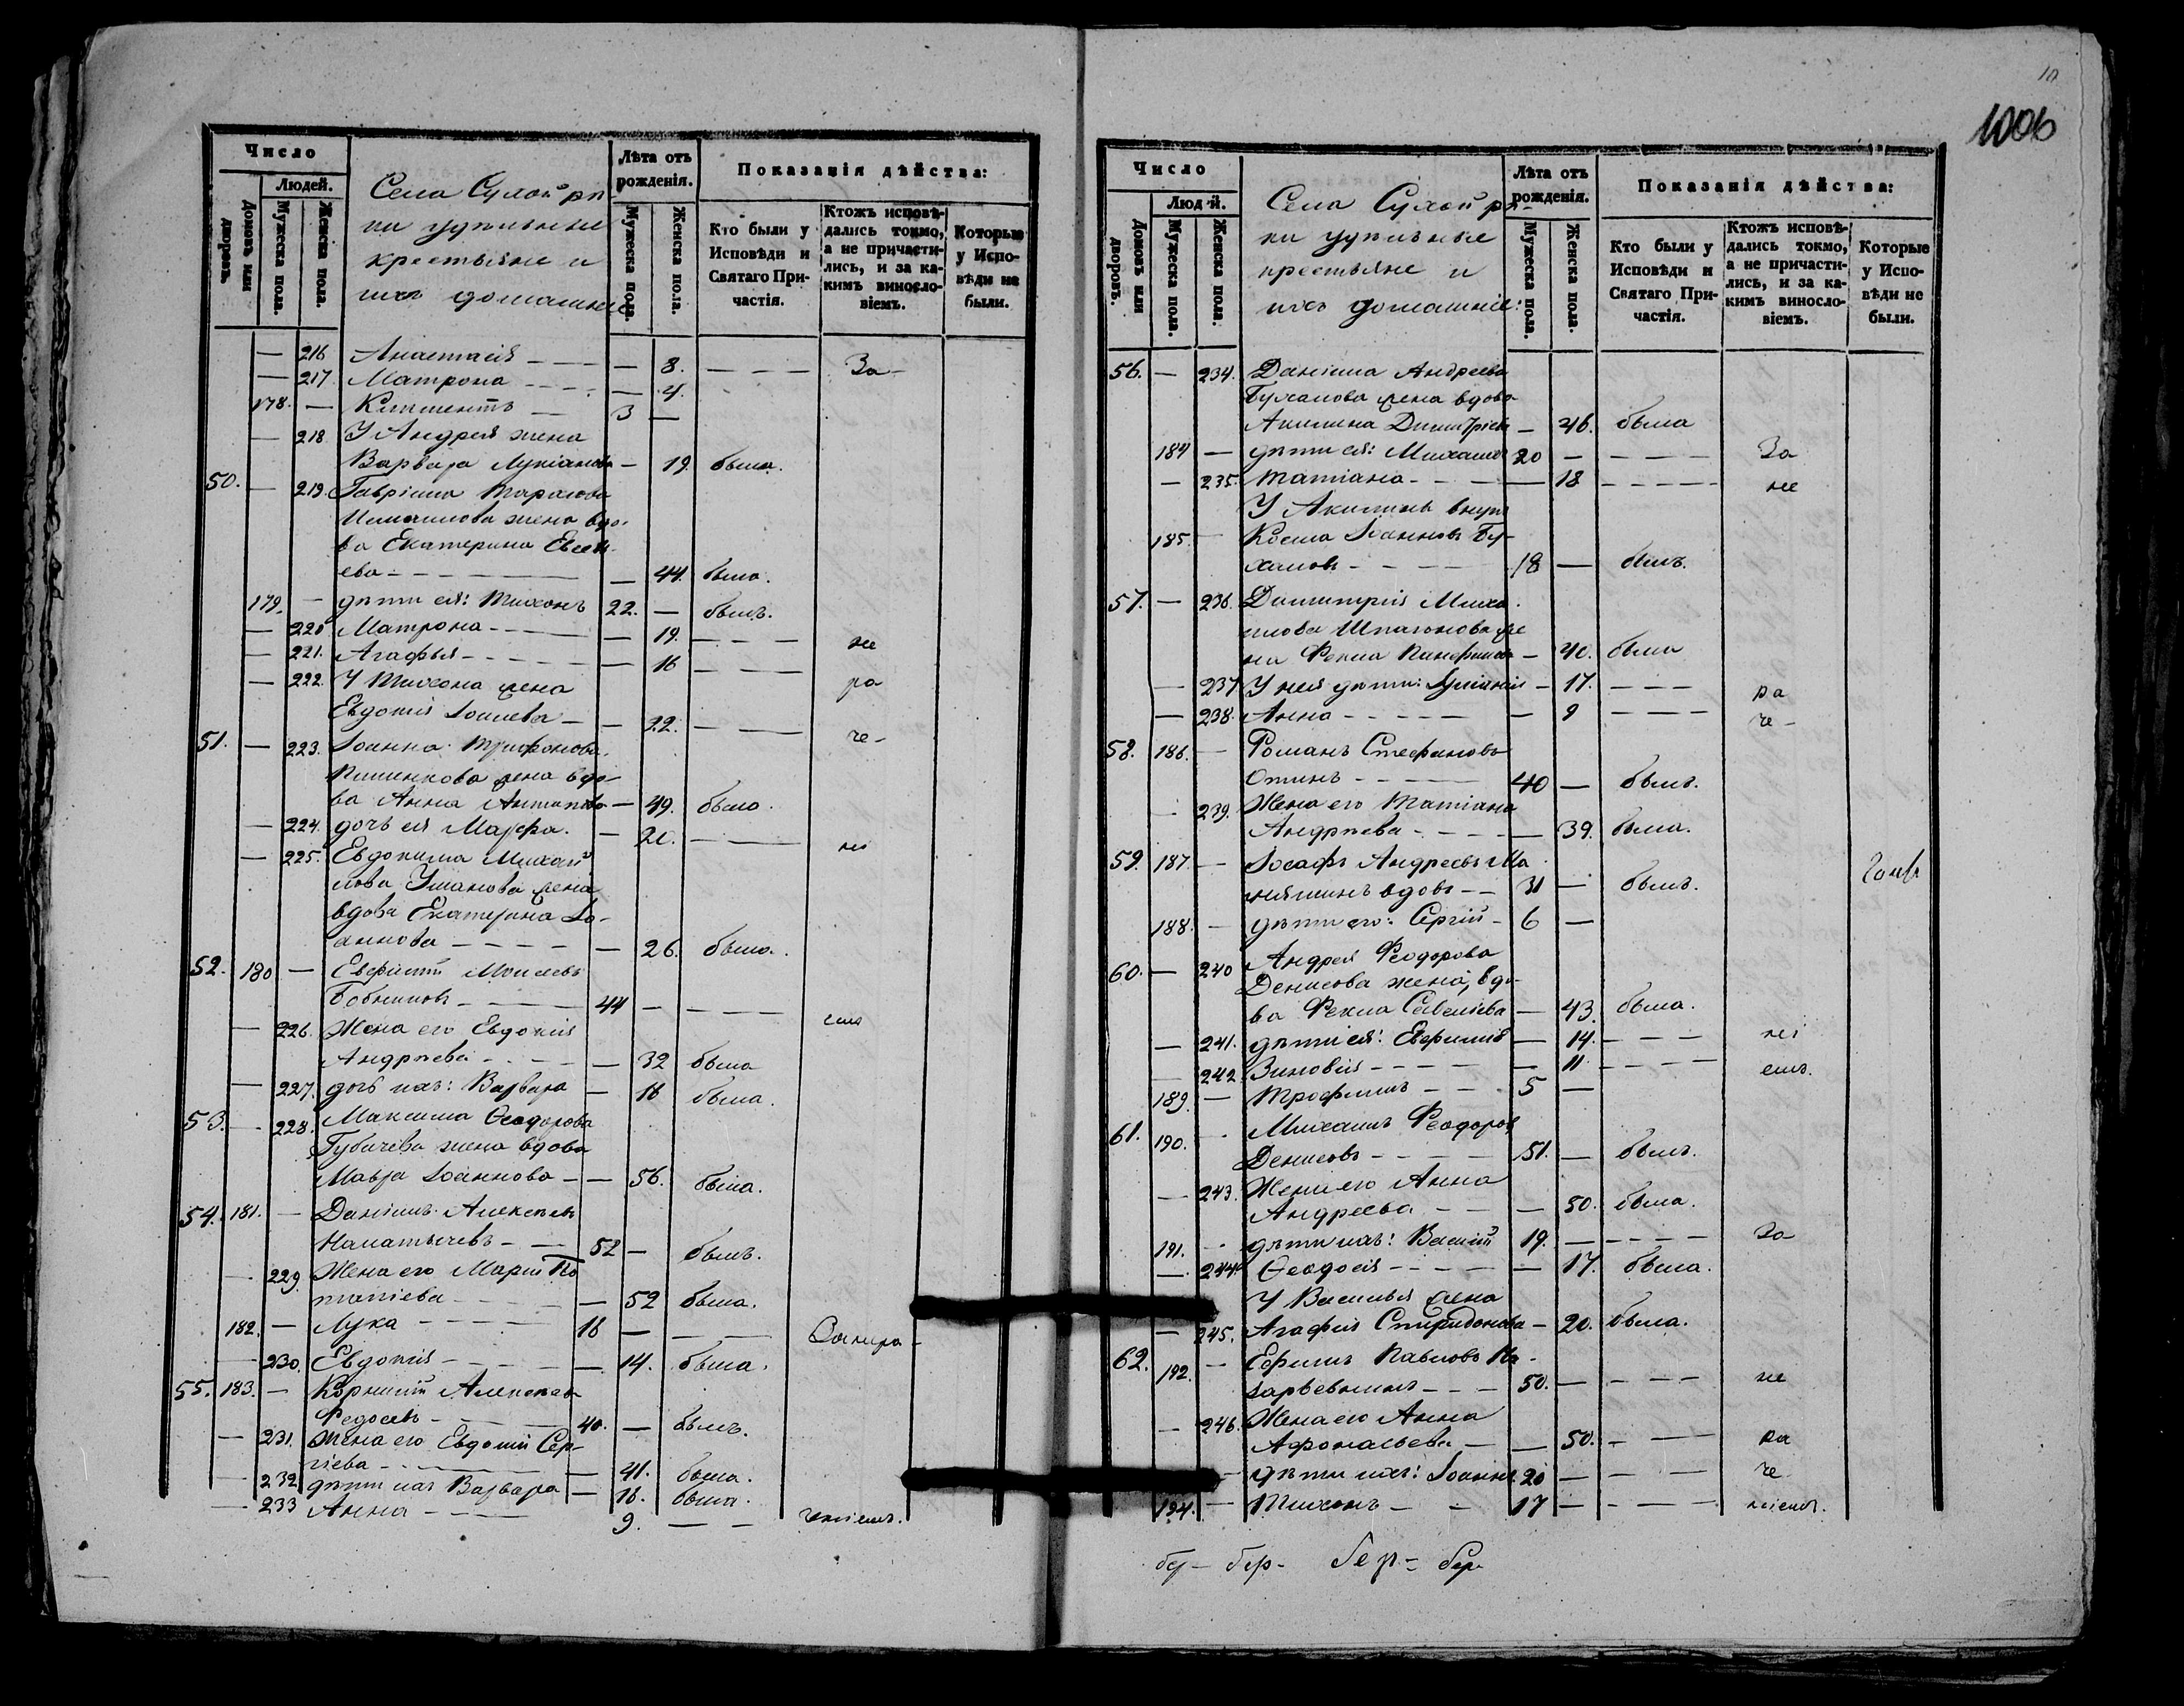 10
1006
Число
Людей.
Домовъ или дворовъ.
Мужеска пола.
Женска пола.
Села Сухой рѣ-
ки удѣльные
крестьяне и
ихъ домашніе
Лѣта отъ рожденія.
Мужеска пола.
Женска пола.
Показанія дѣйства:
Кто были у Исповѣди и Святаго При-частія.
Ктожъ исповѣ-дались токмо, а не причасти-лись, и за ка-кимъ винословіемъ.
Которые у Испо-вѣди не были.
— 216 Анастасія — — 8. — — — За-
— 217. Матрона — — 4.
178. — Климентъ — 3 —
— 218. У Андрея жена
Варвара Лукіанова — 19. была.
50. — 219. Гавріила Тарасова
жена вдо-
ва Екатерина Евсѣ-
ева — — 44. была.
179. — дѣти ея: Тихонъ 22. — былъ.
— 220 Матрона — — 19. — — — не
— 221. Агафья — — 16 — —
— 222. У Тихона жена ра
Евдокія — 22. — —
че-
51. — 223. Іоанна Трифонова
жена вдо-
ва Анна Антипова — 49. была.
— 224. дочь ея Марфа. — 20. — — ні
— 225. Евдокима Михай-
лова Ушакова жена
вдова Екатерина Іо-
аннова — — 26. была.
52. 180 — Моисеевъ
44 — — — емъ
— 226. Жена его Евдокія
Андрѣева — — 32 была
— 227. дочь ихъ: Варвара — 16 была.
53. — 228. Максима Ѳеодорова
жена вдова
Мавра Іоаннова — — 56. была.
54. 181. — Даніилъ Алексѣевъ
52 — былъ.
— 229. Жена его Марія По-
тапіева — — 52 была.
182. — Лука — 16 — — — Занера-
— 230. Евдокія — — 14. была.
55. 183. — Корнилій Алексѣевъ
Федосевъ — 40. — былъ.
— 231. Жена его Евдокія Сер-
гіева — — 41. была.
— 232 дѣти ихъ Варвара — 16. была.
— 233 Анна — 9. — — ченіемъ.
Число
Люд й.
Домовъ или дворовъ.
Мужеска пола.
Женска пола.
Села Сухой рѣ-
ки удѣльные
крестьяне и
ихъ домашніе:
Лѣта отъ рожденія.
Мужеска пола.
Женска пола.
Показанія дѣйства:
Кто были у Исповѣди и Святаго При-частія.
Ктожъ исповѣ-дались токмо, а не причасти-лись, и за ка-кимъ винословіемъ.
Которые у Испо-вѣди не были.
56. — 234. Даніила Андреева
Буханова жена вдова
Акилина Димитріева — 46. была
184 — дѣти ея: Михаилъ 20 — — — За
— 235. Татіана — — 18 — — — не
У Акилины внукъ
185. — Косма Іоанновъ Бу-
хановъ — 18 — былъ.
57. — 236. Димитрія Михай-
лова же
на Фекла — 40. была
— 237 У нея дѣти: — 17. — — — ра
— 238. Анна — — 9 — — — че-
58. 186. — Романъ Стефановъ
40 — былъ.
— 239. Жена его Татіана
Андрѣева — — 39. была.
59. 187. — Іосафъ Андреевъ Ма
вдовъ — 31 — былъ.
188. — дѣти его: Сергій — 6 —
60. — 240 Андрея Ѳеодорова
Денисова жена, вдо-
ва Фекла Савеліева — 43. была.
— 241. дѣти ея: Евфимія — 14. — — — ні
— 242 Зиновія — — 11 — — — емъ.
189. — Трофимъ — 5 —
61. 190. — Михаилъ Ѳеодоров
Денисовъ — 51. — былъ.
— 243. Жена его Анна
Андреева — — 50. была.
191. — дѣти ихъ: Василій 19. — — — За
— 244 Ѳеодосія — — 17. была.
У Василья жена
— 245. Агафія Спиридонова — 20. была.
62. 192. — Ефимъ Павловъ
50. — — — не
— 246. Жена его Анна
Афонасьева — — 50. — — ра
— дѣти ихъ: Іоаннъ 20 — — — че
194. — Тихонъ — 17 — — — ніемъ.
бер- бер- бер- бер-